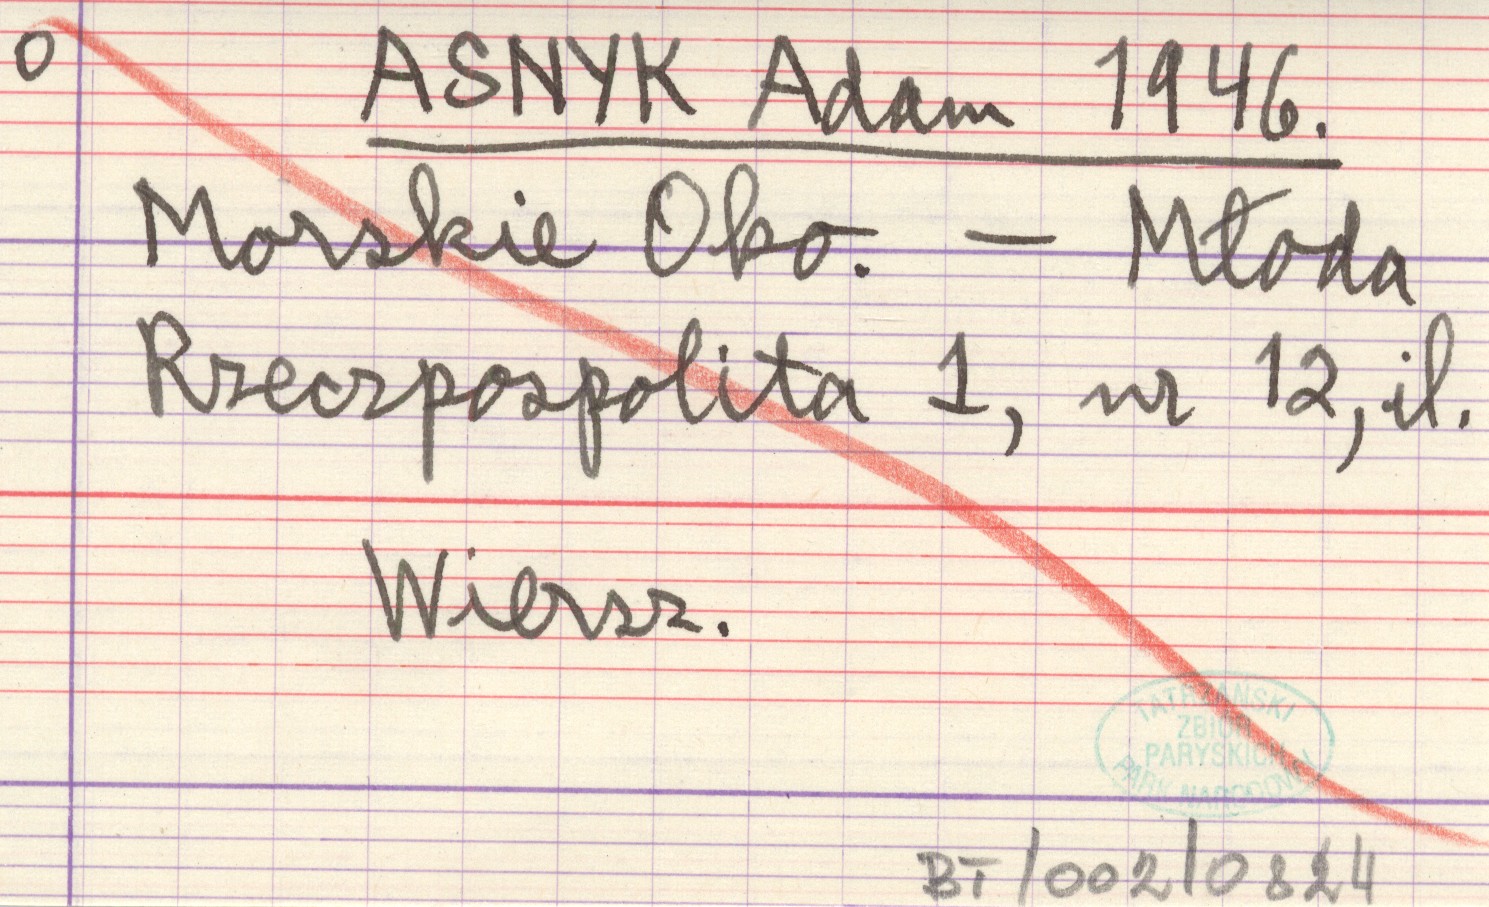 O
ASNYK Adam 1946.
Morskie Oko. — Młoda
Rzeczpospolita 1, nr 12, il.
Wiersz.
TATRZAŃSKI
ZBIÓR
PARYSKICH
PARK NARODOWY
BT/002/0824